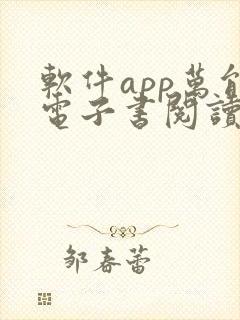 軟件app萬能
電子書閱讀
鄒春蕾